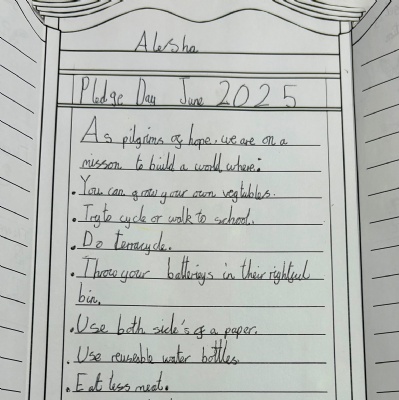 Alesha
Pledge Day June 2025
As pilgrims of hope, we are on a
misson to build a world where:
• You can grow your own vegtables.
• Try to cycle or walk to school.
• Do terracycle.
• Throw your batterys in their rightful
bin.
• Use both side's of a paper.
• Use reuseable water bottles
• Eat less meat.